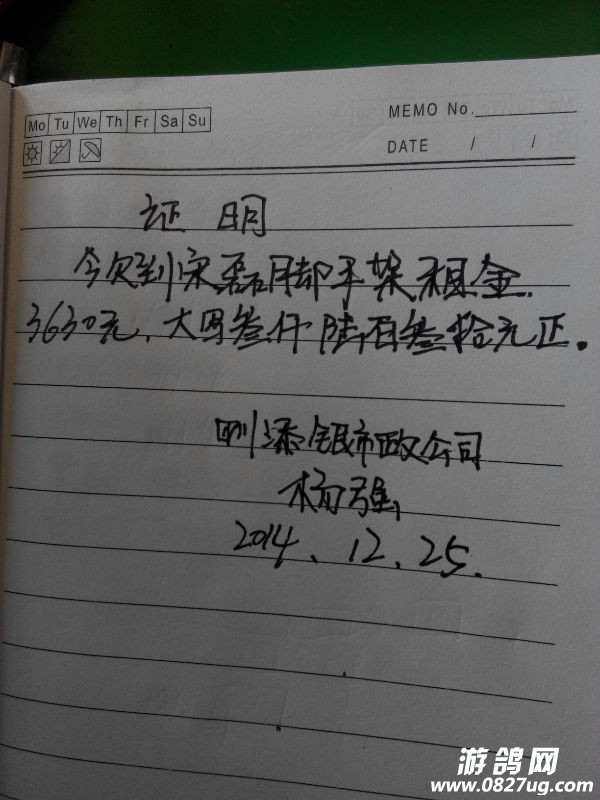 Mo Tu We Th Fr Sa Su
MEMO No.
DATE / /
证明
今欠到宋磊脚手架租金
3630元,大写叁仟陆百叁拾元正。
添银市政公司
杨强
2014.12.25.
游鸽网
www.0827ug.com